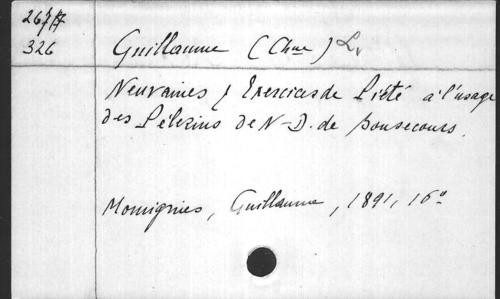 267
326
Guillaume (Chne) L.
Neuvaines & Exercices de Piété à l'usage
des Pèlerins de N-D. de Bonsecours.
Momignies, Guillaume, 1891, 16°